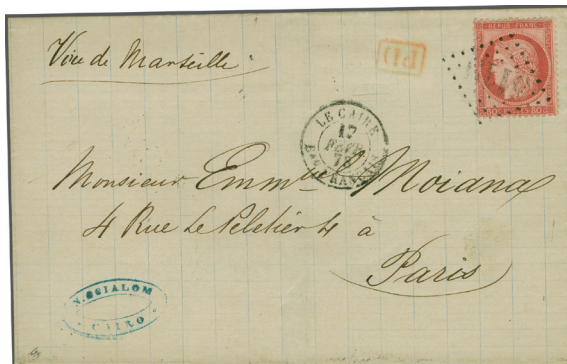 Voie de Marseille
PD
REPUB. FRANC.
80 80
LE CAIRE
17
FEVR.
73
Bau FRANCAIS
Monsieur Emmle Moiana
4 Rue Le Peletier 4 à
Paris
N. SCIALOM
CAIRO